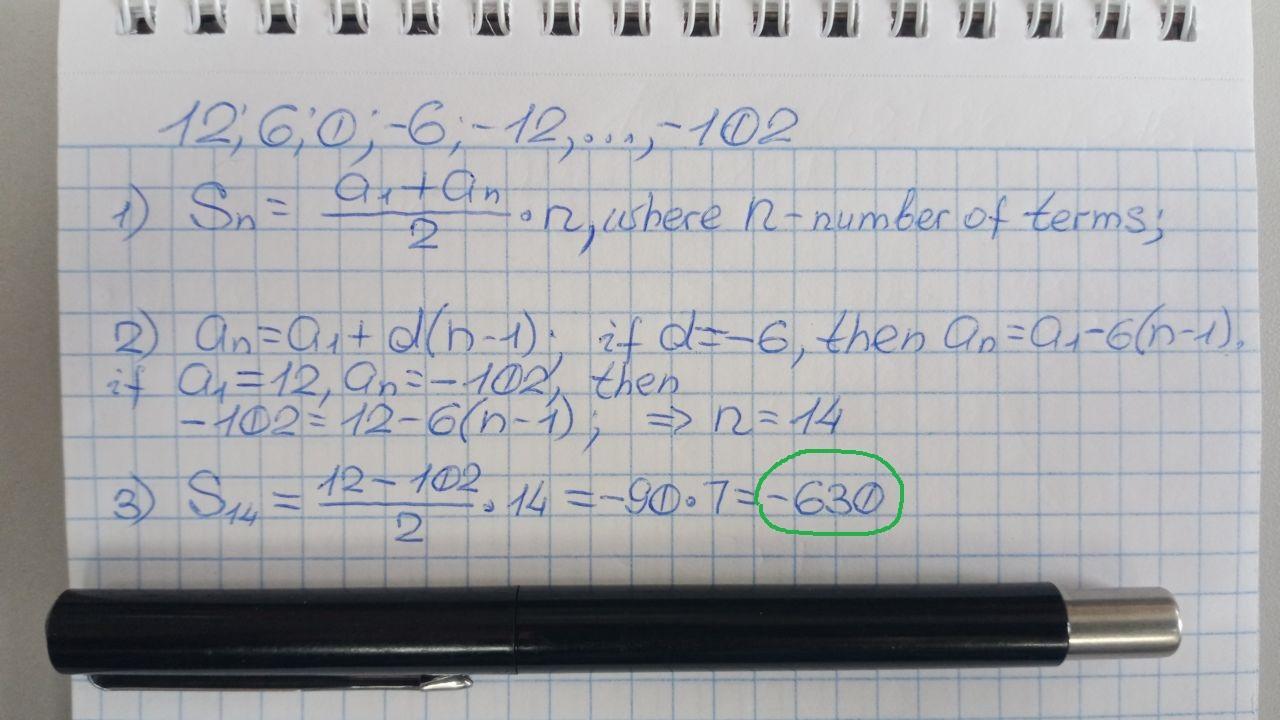 12; 6; 0; -6; -12, ..., -102
1) Sn = (a1 + an)/2 · n, where n - number of terms;
2) an = a1 + d(n-1); if d = -6, then an = a1 - 6(n-1).
if a1 = 12, an = -102, then
-102 = 12 - 6(n-1); ⇒ n = 14
3) S14 = (12 - 102)/2 · 14 = -90 · 7 = -630